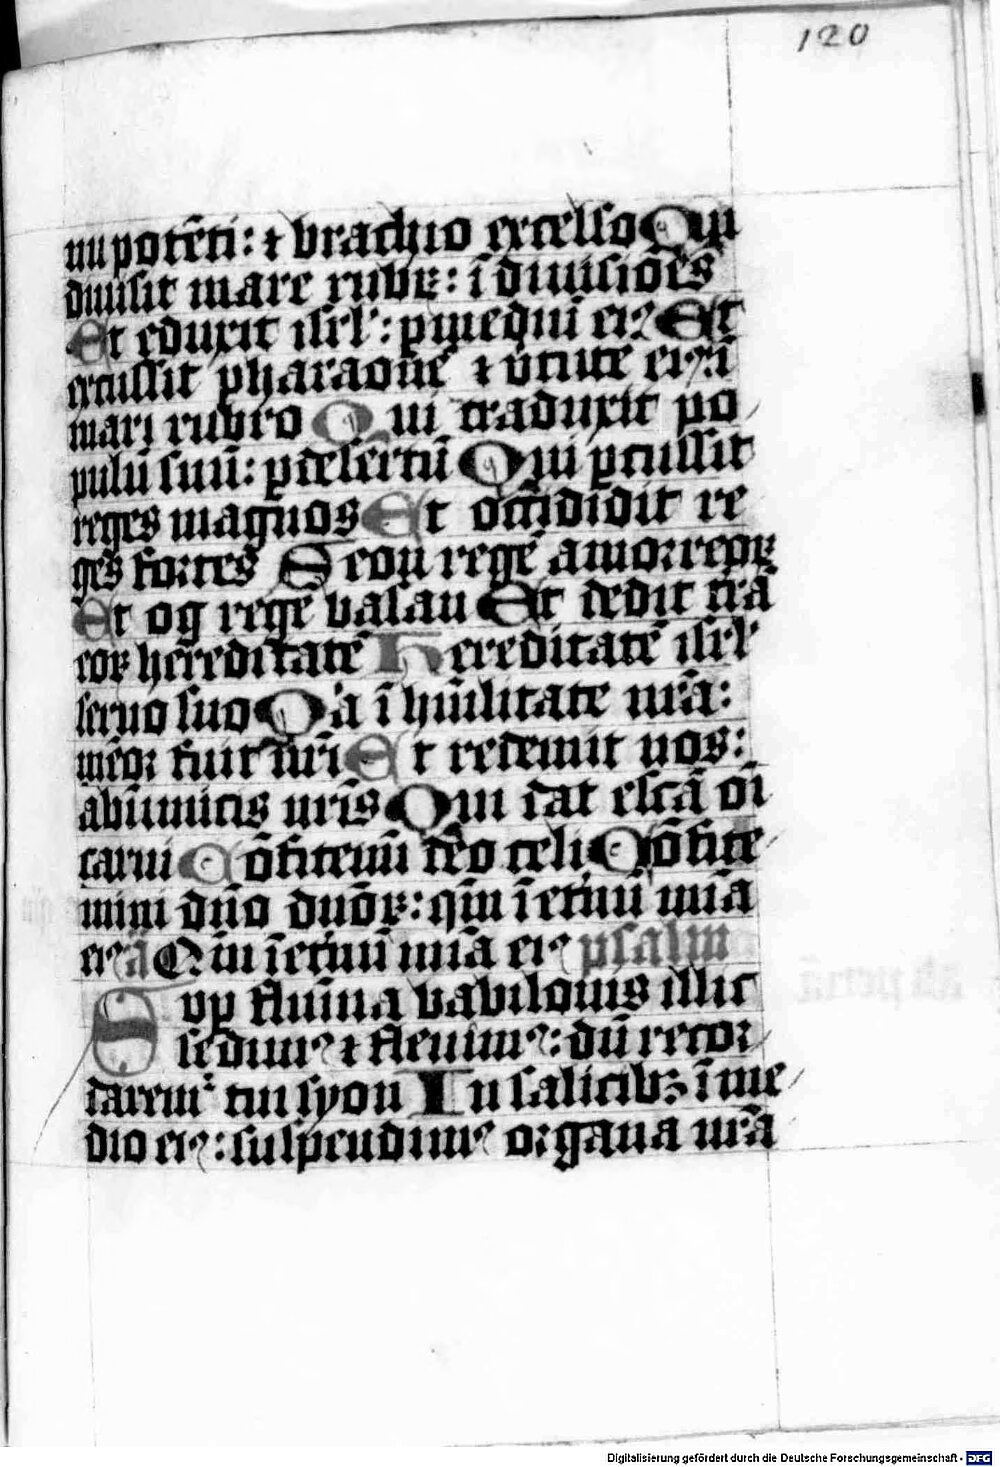 120
nu potēti: ⁊ brachio excelso Qui
diuisit mare rubꝝ: ī diuisiōēs
Et eduxit isrl': ꝑ mediū eiꝰ Et
excussit pharaonē ⁊ v̄tute eiꝰ: ī
mari rubro Qui traduxit po
pulū suū: ꝑ desertū Qui ꝑcussit
reges magnos Et occidit re
ges fortes Seon regē amorreoꝝ
Et og regē basan Et dedit trā
eoꝝ hereditatē Hereditatē isrl'
seruo suo Q'a ī hūilitate nrā:
mēor fuit nrī Et redemit nos:
ab īimicis nrīs Qui dat escā oī
carni Cōfitemī deo celi Cōfite
mini dño dñoꝝ: qm̄ ī etnū mīa
eiꝰ ā Qm̄ ī etnū mīa eiꝰ psalm
Suꝑ flumīa babilonis illic
sedimꝰ ⁊ fleuimꝰ: dū recor
daremꝰ tui syon In salicibꝫ ī me
dio eiꝰ: suspendimꝰ organa nrā
Digitalisierung gefördert durch die Deutsche Forschungsgemeinschaft - DFG